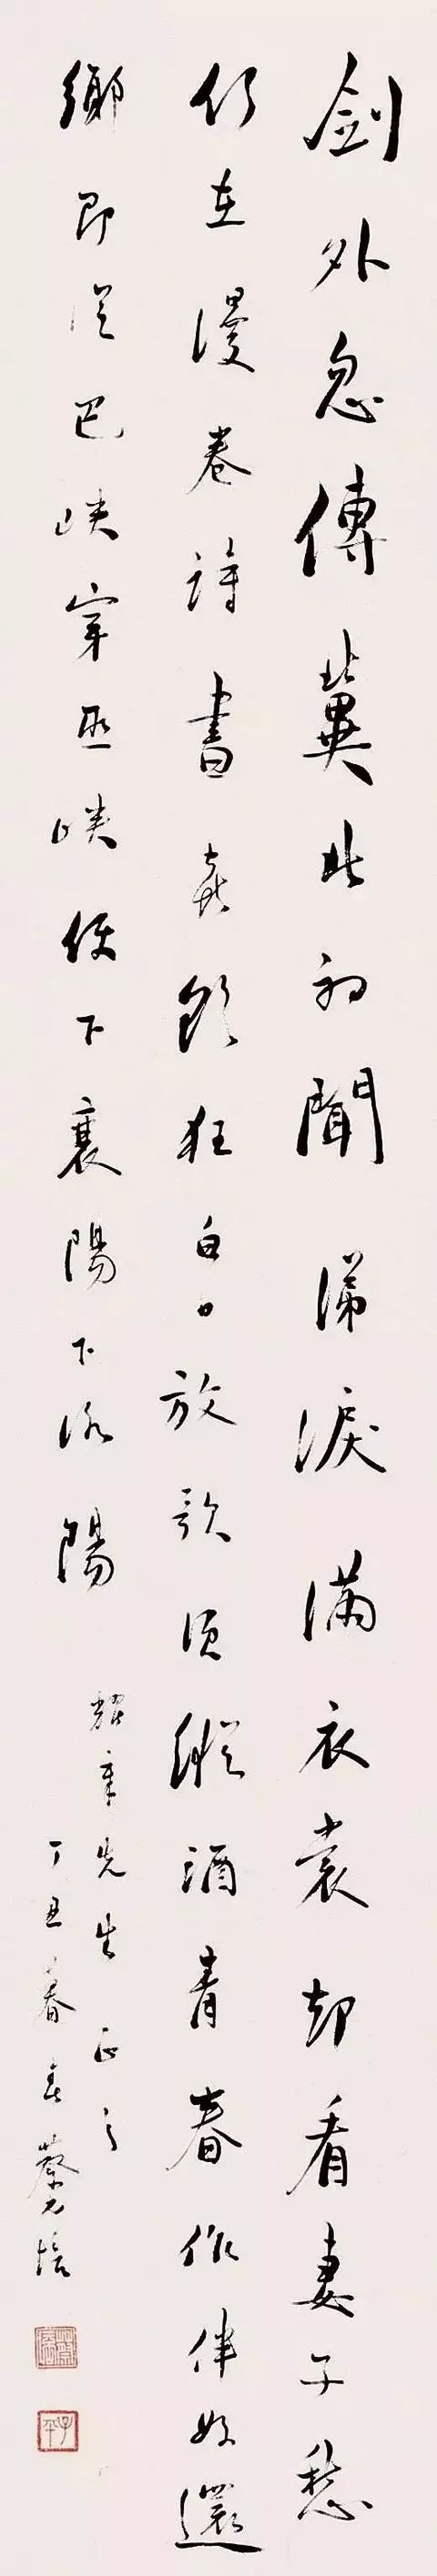 劍外忽傳冀北初聞涕淚滿衣裳却看妻子愁
何在漫卷詩書喜欲狂白日放歌須縱酒青春作伴好還
鄉即從巴峽穿巫峽便下襄陽下洛陽
章先生正之
丁丑暮春蔡元培